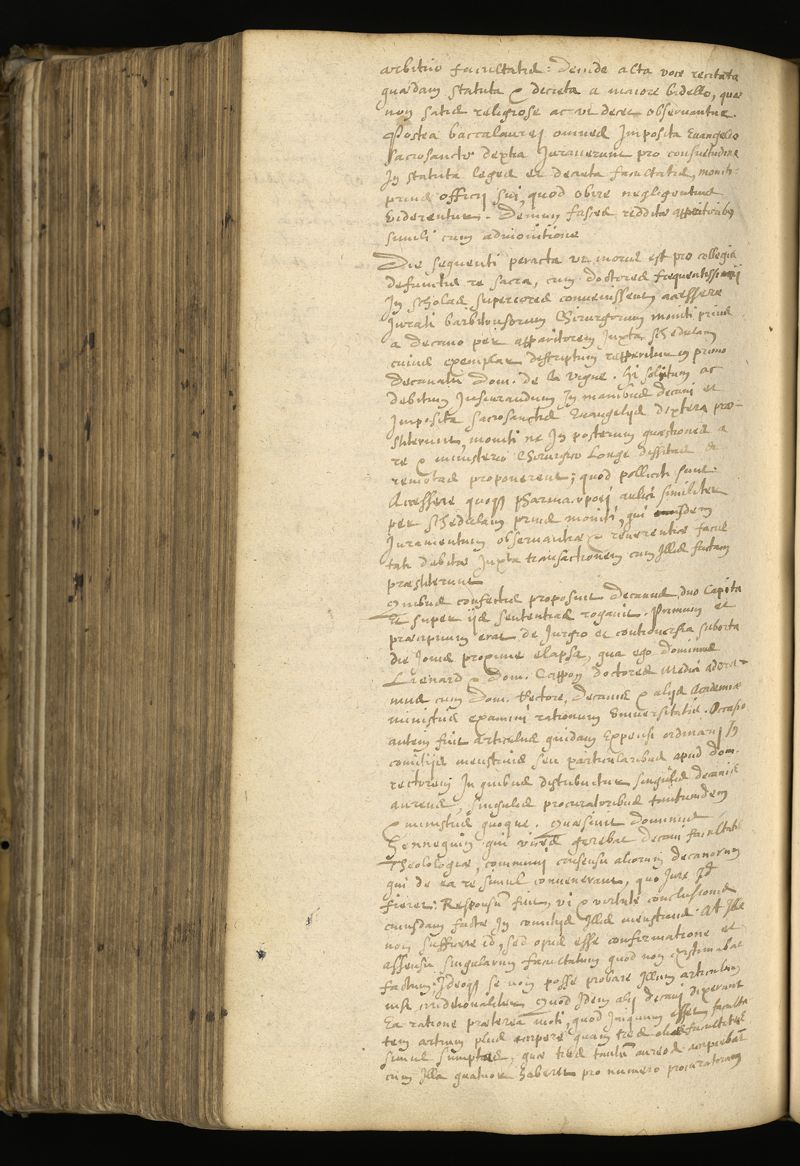 arbitrio facultatis. Deinde alta voce recitata
quædam statuta & decreta a maiore bidello, quæ
non satis religiose ac ut decet observantur.
Postea baccalaurei omnes imposita Evangelio
sacrosancto dextra iuraverunt pro consuetudine
In statuta leges et decreta facultatis, moniti
prius officij sui, quod obire negligentius
viderentur. Demum fasces redditæ apparitoribus
simili cum admonitione
Die sequenti peracta ut moris est pro collegis
defunctis re sacra, cum doctores frequentissimi
In scholas superiores convenissent accessere
Iurati barbitonsorum Chirurgorum moniti prius
a decano per apparitorem juxta schedulam
cuius exemplar descriptum reperitur in primo
decanatu Dom. de la vigne. hi solitum ac
debitum Iusiurandum in manibus decani et
Imposita sacrosanctis Evangelijs dextera præ-
stiterunt, moniti ne In posterum quæstiones a
re & ministerio Chirurgico longe dissitas &
remotas proponerent; quod polliciti sunt.
Accessere quoque pharmacopoei aulici similiter
per schedulam prius moniti, qui Idem
Iuramentum observantiæ & reverentiæ facul
tati debitæ Juxta transactionem cum Illis factam
præstiterunt
Quibus confectis proposuit Decanus duo capita
et super ijs sententias rogavit. Primum et
præcipuum erat de Jurgio et controversia suborta
die Jovis proxime elapsa, qua ego dominus
Lienard & Dom. Cappon doctores Medici adera-
mus cum Dom. Rectore, Decanis & alijs Academiæ
ministris examini rationum Universitatis. Occasio
autem fuit articulus quidam Expensi ordinarij In
comitijs menstruis seu particularibus apud dom.
rectorem In quibus distribuitur singulis decanis
aureus, singulis procuratoribus tantumdem
& ministris quoque. Quæsiuit dominus
Hennequin qui vices gerebat decani facultatis
Theologiæ, communi consensu aliorum decanorum
qui de ea re simul convenerant, quo jure Id
fieret. Responsum fuit, vi & virtute conclusionis
cuiusdam factæ In comitijs Illis menstruis. At Ille
non sufficere id, sed opus esse confirmatione et
assensu singularum facultatum quod non existimabat
factum: Ideoque se non posse probare Illum articulum
nisi conditionaliter. Quod Idem alij decani dixerunt
Ea ratione præterea moti, quod Iniquum esset faculta
tem artium plus accipere quam tres alias facultates
simul sumptas, quæ tres tantum aureos accipiebant
cum Illa quatuor haberet pro numero procuratorum